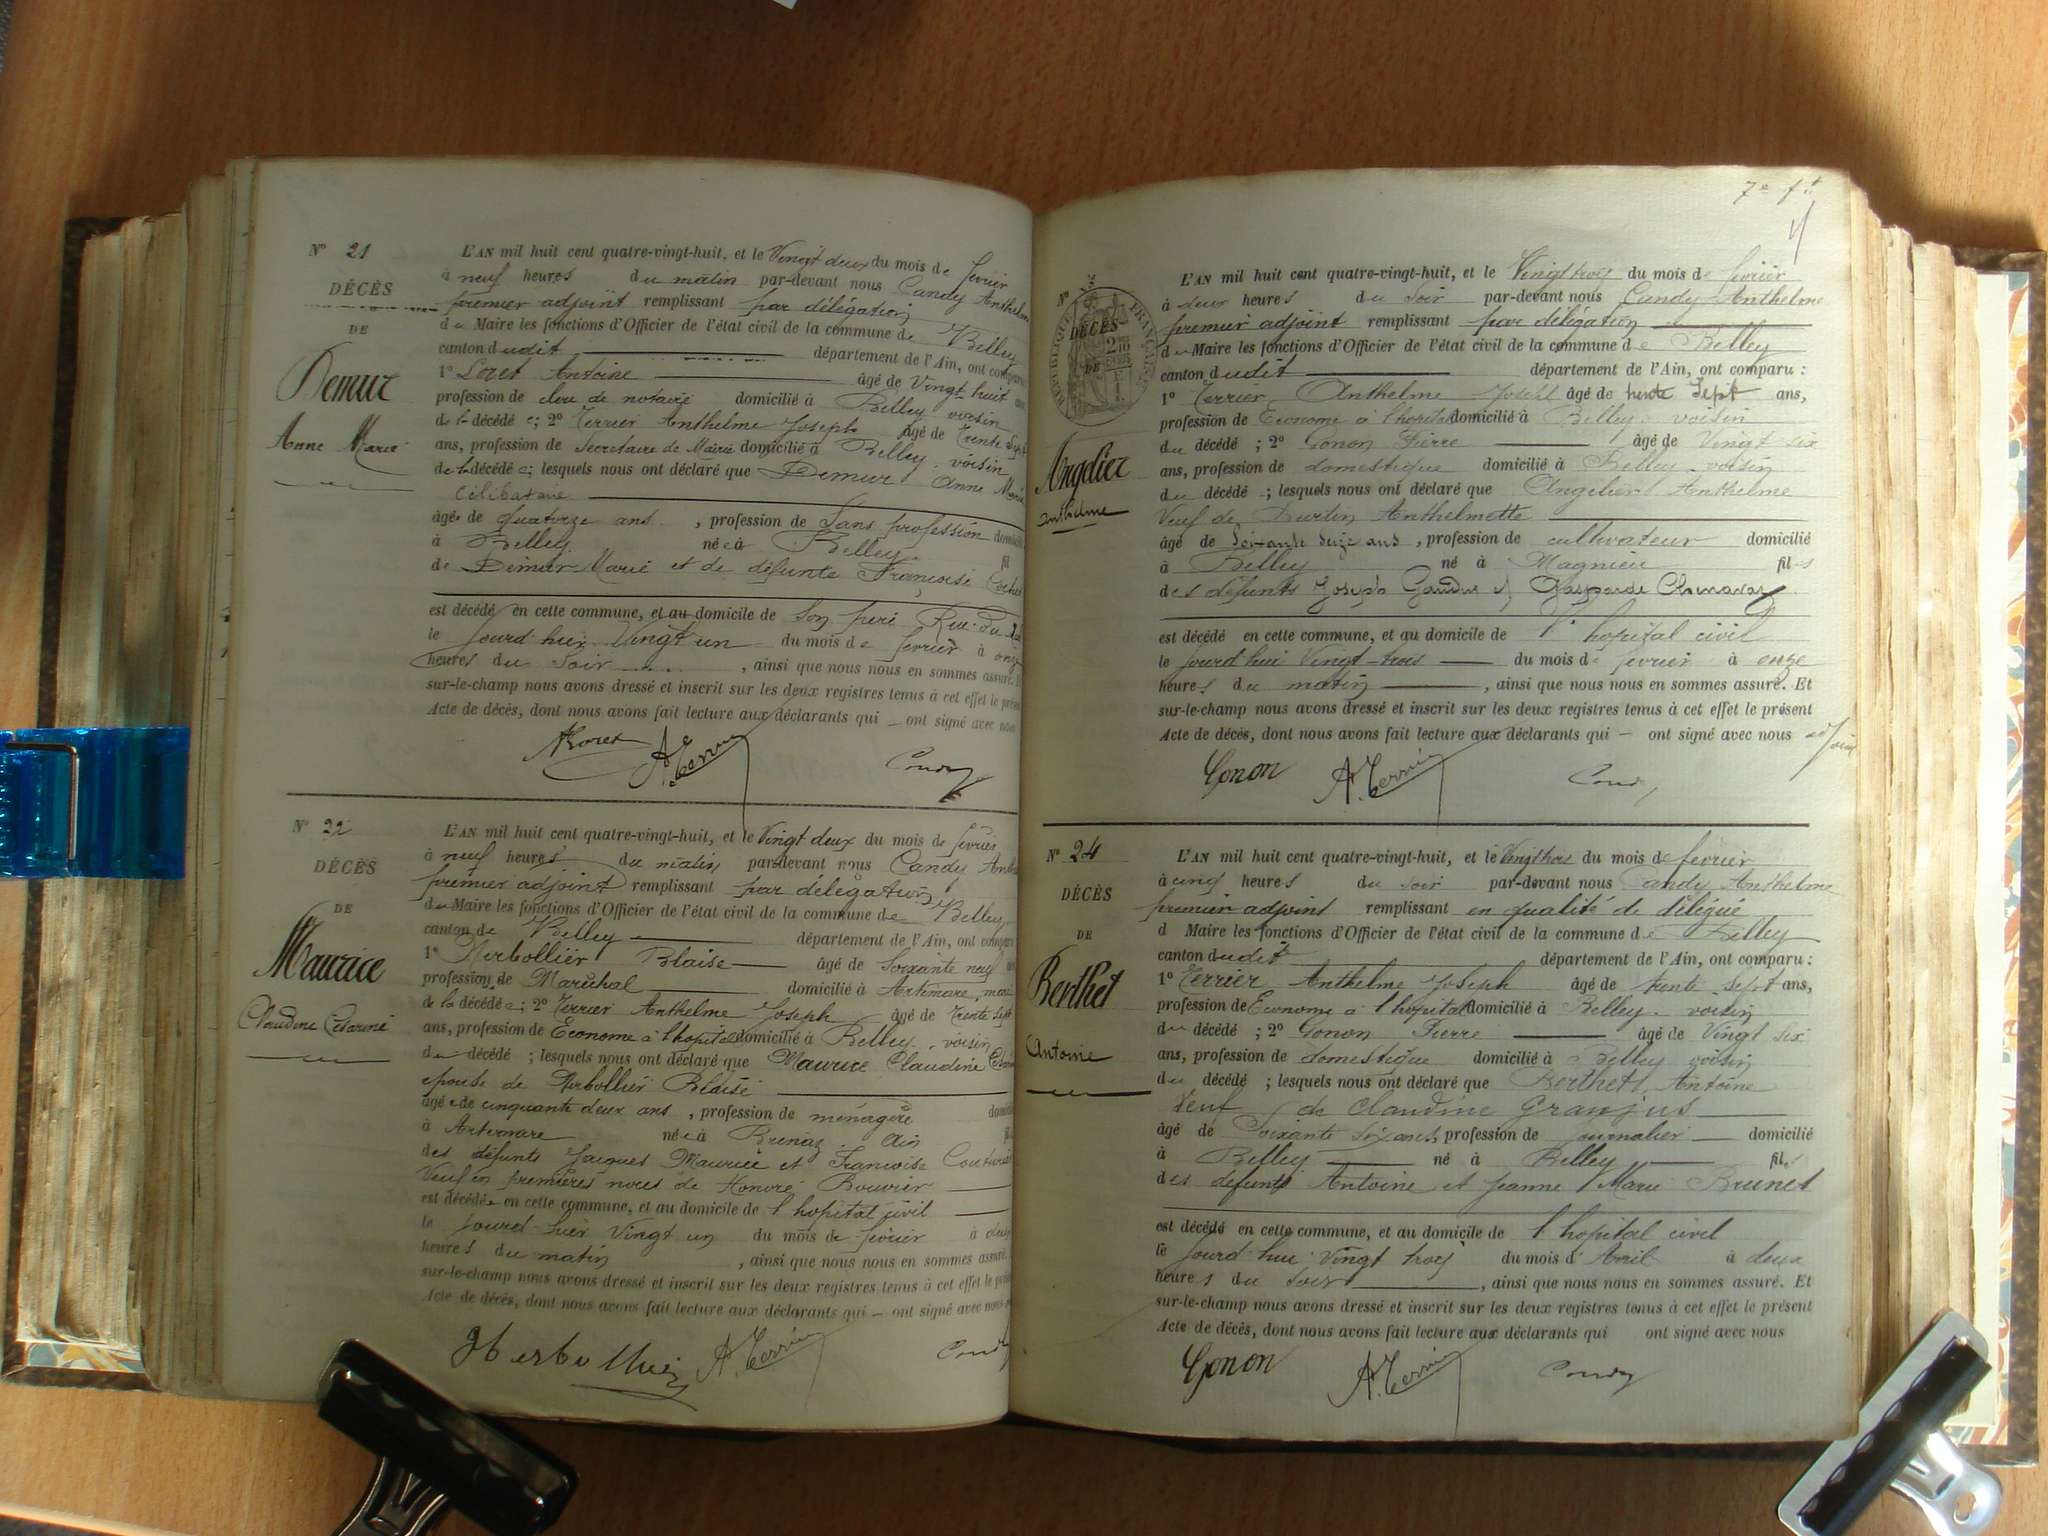 N° 21
DÉCÈS
DE
Demur
Anne Marie
L'AN mil huit cent quatre-vingt-huit, et le Vingt deux du mois de février
à neuf heures du matin par-devant nous Candy Anthelm
premier adjoint remplissant par délégation
du Maire les fonctions d'Officier de l'état civil de la commune de Belley
canton dudit département de l'Ain, ont comparu
1° Antoine âgé de Vingt huit
profession de clerc de notaire domicilié à Belley voisin
de la décédé e; 2° Terrier Anthelme Joseph âgé de Trente Sept
ans, profession de Secretaire de Mairie domicilié à Belley. voisin
de la décédé e; lesquels nous ont déclaré que Demur Anne Marie
Célibataire
âgée de quatorze ans. , profession de Sans profession domicilié
à Belley née à Belley fil
de Demur Marie et de défunte Françoise
est décédé en cette commune, et au domicile de Son père Rue du
le jourd'hier Vingt un du mois de février à onze
heures du Soir , ainsi que nous nous en sommes assuré. E
sur-le-champ nous avons dressé et inscrit sur les deux registres tenus à cet effet le prése
Acte de décès, dont nous avons fait lecture aux déclarants qui — ont signé avec nous
A. Terrier Candy
N° 22
DÉCÈS
DE
Maurice
Claudine Césarine
L'AN mil huit cent quatre-vingt-huit, et le Vingt deux du mois de février
à neuf heures du matin par-devant nous Candy Anth
premier adjoint remplissant par délégation
du Maire les fonctions d'Officier de l'état civil de la commune de Belley
canton de Belley département de l'Ain, ont comparu
1° Herbollier Blaise âgé de Soixante neuf
profession de Maréchal domicilié à Artemare, mari
de la décédé e; 2° Terrier Anthelme Joseph âgé de Trente Sept
ans, profession de Econome à l'hopital domicilié à Belley. voisin
du décédé ; lesquels nous ont déclaré que Maurice Claudine
épouse de Herbollier Blaise
âgée de cinquante deux ans , profession de ménagère domicilié
à Artemare née à Brénaz Ain
des défunts Jacques Maurice et Francoise Couturi
Veuf en premières noces de Honoré Bouvier
est décédée en cette commune, et au domicile de l'hopital civil
le jourd'hier Vingt un du mois de février à deux
heures du matin , ainsi que nous nous en sommes assuré.
sur-le-champ nous avons dressé et inscrit sur les deux registres tenus à cet effet le prése
Acte de décès, dont nous avons fait lecture aux déclarants qui — ont signé avec nous
Herbollier A. Terrier Candy
7e ft
N° 23
RÉPUBLIQUE FRANÇAISE
DÉCÈS
DE
Angelier
Anthelme
L'AN mil huit cent quatre-vingt-huit, et le Vingt trois du mois de février
à deux heures du Soir par-devant nous Candy Anthelme
premier adjoint remplissant par délégation
du Maire les fonctions d'Officier de l'état civil de la commune de Belley
canton dudit département de l'Ain, ont comparu :
1° Terrier Anthelme Joseph âgé de trente Sept ans,
profession de Econome à l'hopital domicilié à Belley. voisin
du décédé ; 2° Gonon Pierre âgé de Vingt six
ans, profession de domestique domicilié à Belley. voisin
du décédé ; lesquels nous ont déclaré que Angelier Anthelme
Veuf de Durtin Anthelmette
âgé de Soixante seize ans , profession de cultivateur domicilié
à Belley né à Magnieu fils
des défunts Joseph et Gasparde Chenavaz
est décédé en cette commune, et au domicile de l'hopital civil
le jourd'hui Vingt-trois du mois de février à onze
heures du matin , ainsi que nous nous en sommes assuré. Et
sur-le-champ nous avons dressé et inscrit sur les deux registres tenus à cet effet le présent
Acte de décès, dont nous avons fait lecture aux déclarants qui — ont signé avec nous adjoint
Gonon A. Terrier Candy
N° 24
DÉCÈS
DE
Berthet
Antoine
L'AN mil huit cent quatre-vingt-huit, et le Vingt trois du mois de février
à cinq heures du soir par-devant nous Candy Anthelme
premier adjoint remplissant en qualité de délégué
d Maire les fonctions d'Officier de l'état civil de la commune de Belley
canton dudit département de l'Ain, ont comparu :
1° Terrier Anthelme Joseph âgé de trente sept ans,
profession de Econome à l'hopital domicilié à Belley. voisin
du décédé ; 2° Gonon Pierre âgé de Vingt six
ans, profession de domestique domicilié à Belley voisin
du décédé ; lesquels nous ont déclaré que Berthet Antoine
veuf de Claudine Granjus
âgé de Soixante six ans, profession de journalier domicilié
à Belley né à Belley fils
des défunts Antoine et Jeanne Marie Brunet
est décédé en cette commune, et au domicile de l'hopital civil
le jourd'hui Vingt trois du mois d'Avril à deux
heures du Soir , ainsi que nous nous en sommes assuré. Et
sur-le-champ nous avons dressé et inscrit sur les deux registres tenus à cet effet le présent
Acte de décès, dont nous avons fait lecture aux déclarants qui ont signé avec nous
Gonon A. Terrier Candy